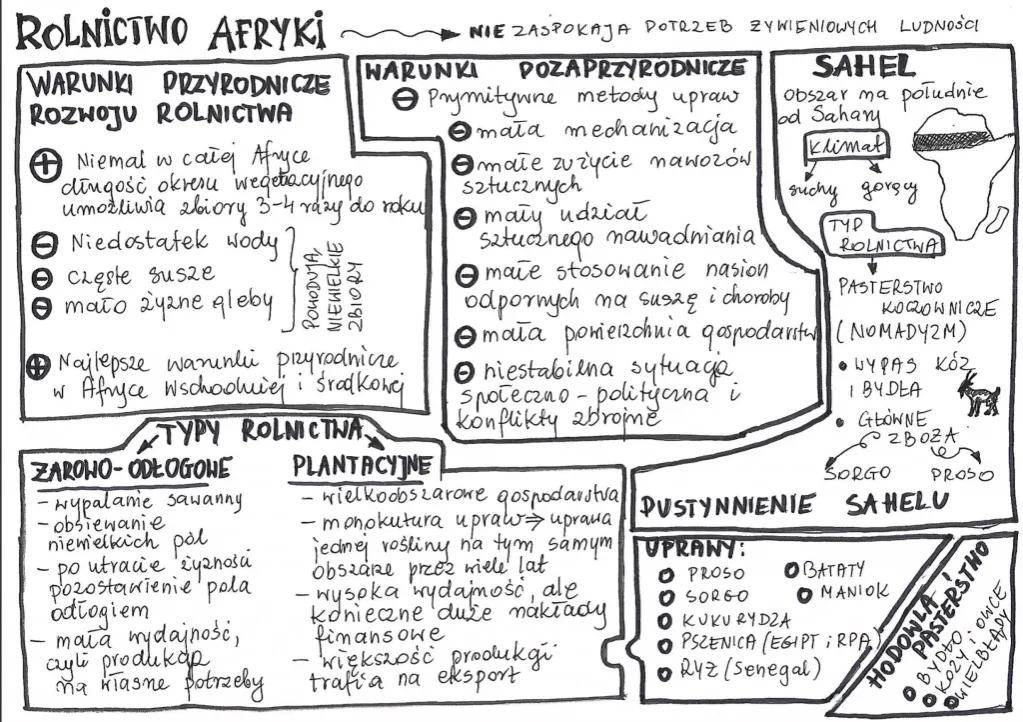 ROLNICTWO AFRYKI → NIE ZASPOKAJA POTRZEB ŻYWIENIOWYCH LUDNOŚCI
WARUNKI PRZYRODNICZE
ROZWOJU ROLNICTWA
⊕ Niemal w całej Afryce
długość okresu wegetacyjnego
umożliwia zbiory 3-4 razy do roku
⊖ Niedostatek wody
⊖ częste susze
⊖ mało żyzne gleby
POWODUJĄ
NIEWIELKIE
ZBIORY
⊕ Najlepsze warunki przyrodnicze
w Afryce Wschodniej i Środkowej
WARUNKI POZAPRZYRODNICZE
⊖ Prymitywne metody upraw
⊖ mała mechanizacja
⊖ małe zużycie nawozów
sztucznych
⊖ mały udział
sztucznego nawadniania
⊖ małe stosowanie nasion
odpornych na suszę i choroby
⊖ mała powierzchnia gospodarstw
⊖ niestabilna sytuacja
społeczno-polityczna i
konflikty zbrojne
SAHEL
obszar na południe
od Sahary
klimat
suchy gorący
TYP
ROLNICTWA
PASTERSTWO
KOCZOWNICZE
(NOMADYZM)
• WYPAS KÓZ
I BYDŁA
• GŁÓWNE
ZBOŻA
SORGO PROSO
PUSTYNNIENIE SAHELU
TYPY ROLNICTWA
ŻAROWO-ODŁOGOWE
- wypalanie sawanny
- obsiewanie
niewielkich pól
- po utracie żyzności
pozostawienie pola
odłogiem
- mała wydajność,
czyli produkcja
na własne potrzeby
PLANTACYJNE
- wielkoobszarowe gospodarstwa
- monokutura upraw ⇒ uprawa
jednej rośliny na tym samym
obszarze przez wiele lat
- wysoka wydajność, ale
konieczne duże nakłady
finansowe
- większość produkcji
trafia na eksport
UPRAWY:
PROSO
SORGO
KUKURYDZA
PSZENICA (EGIPT i RPA)
RYŻ (Senegal)
BATATY
MANIOK
HODOWLA
PASTERSTWO
BYDŁO
KOZY i OWCE
WIELBŁĄDY